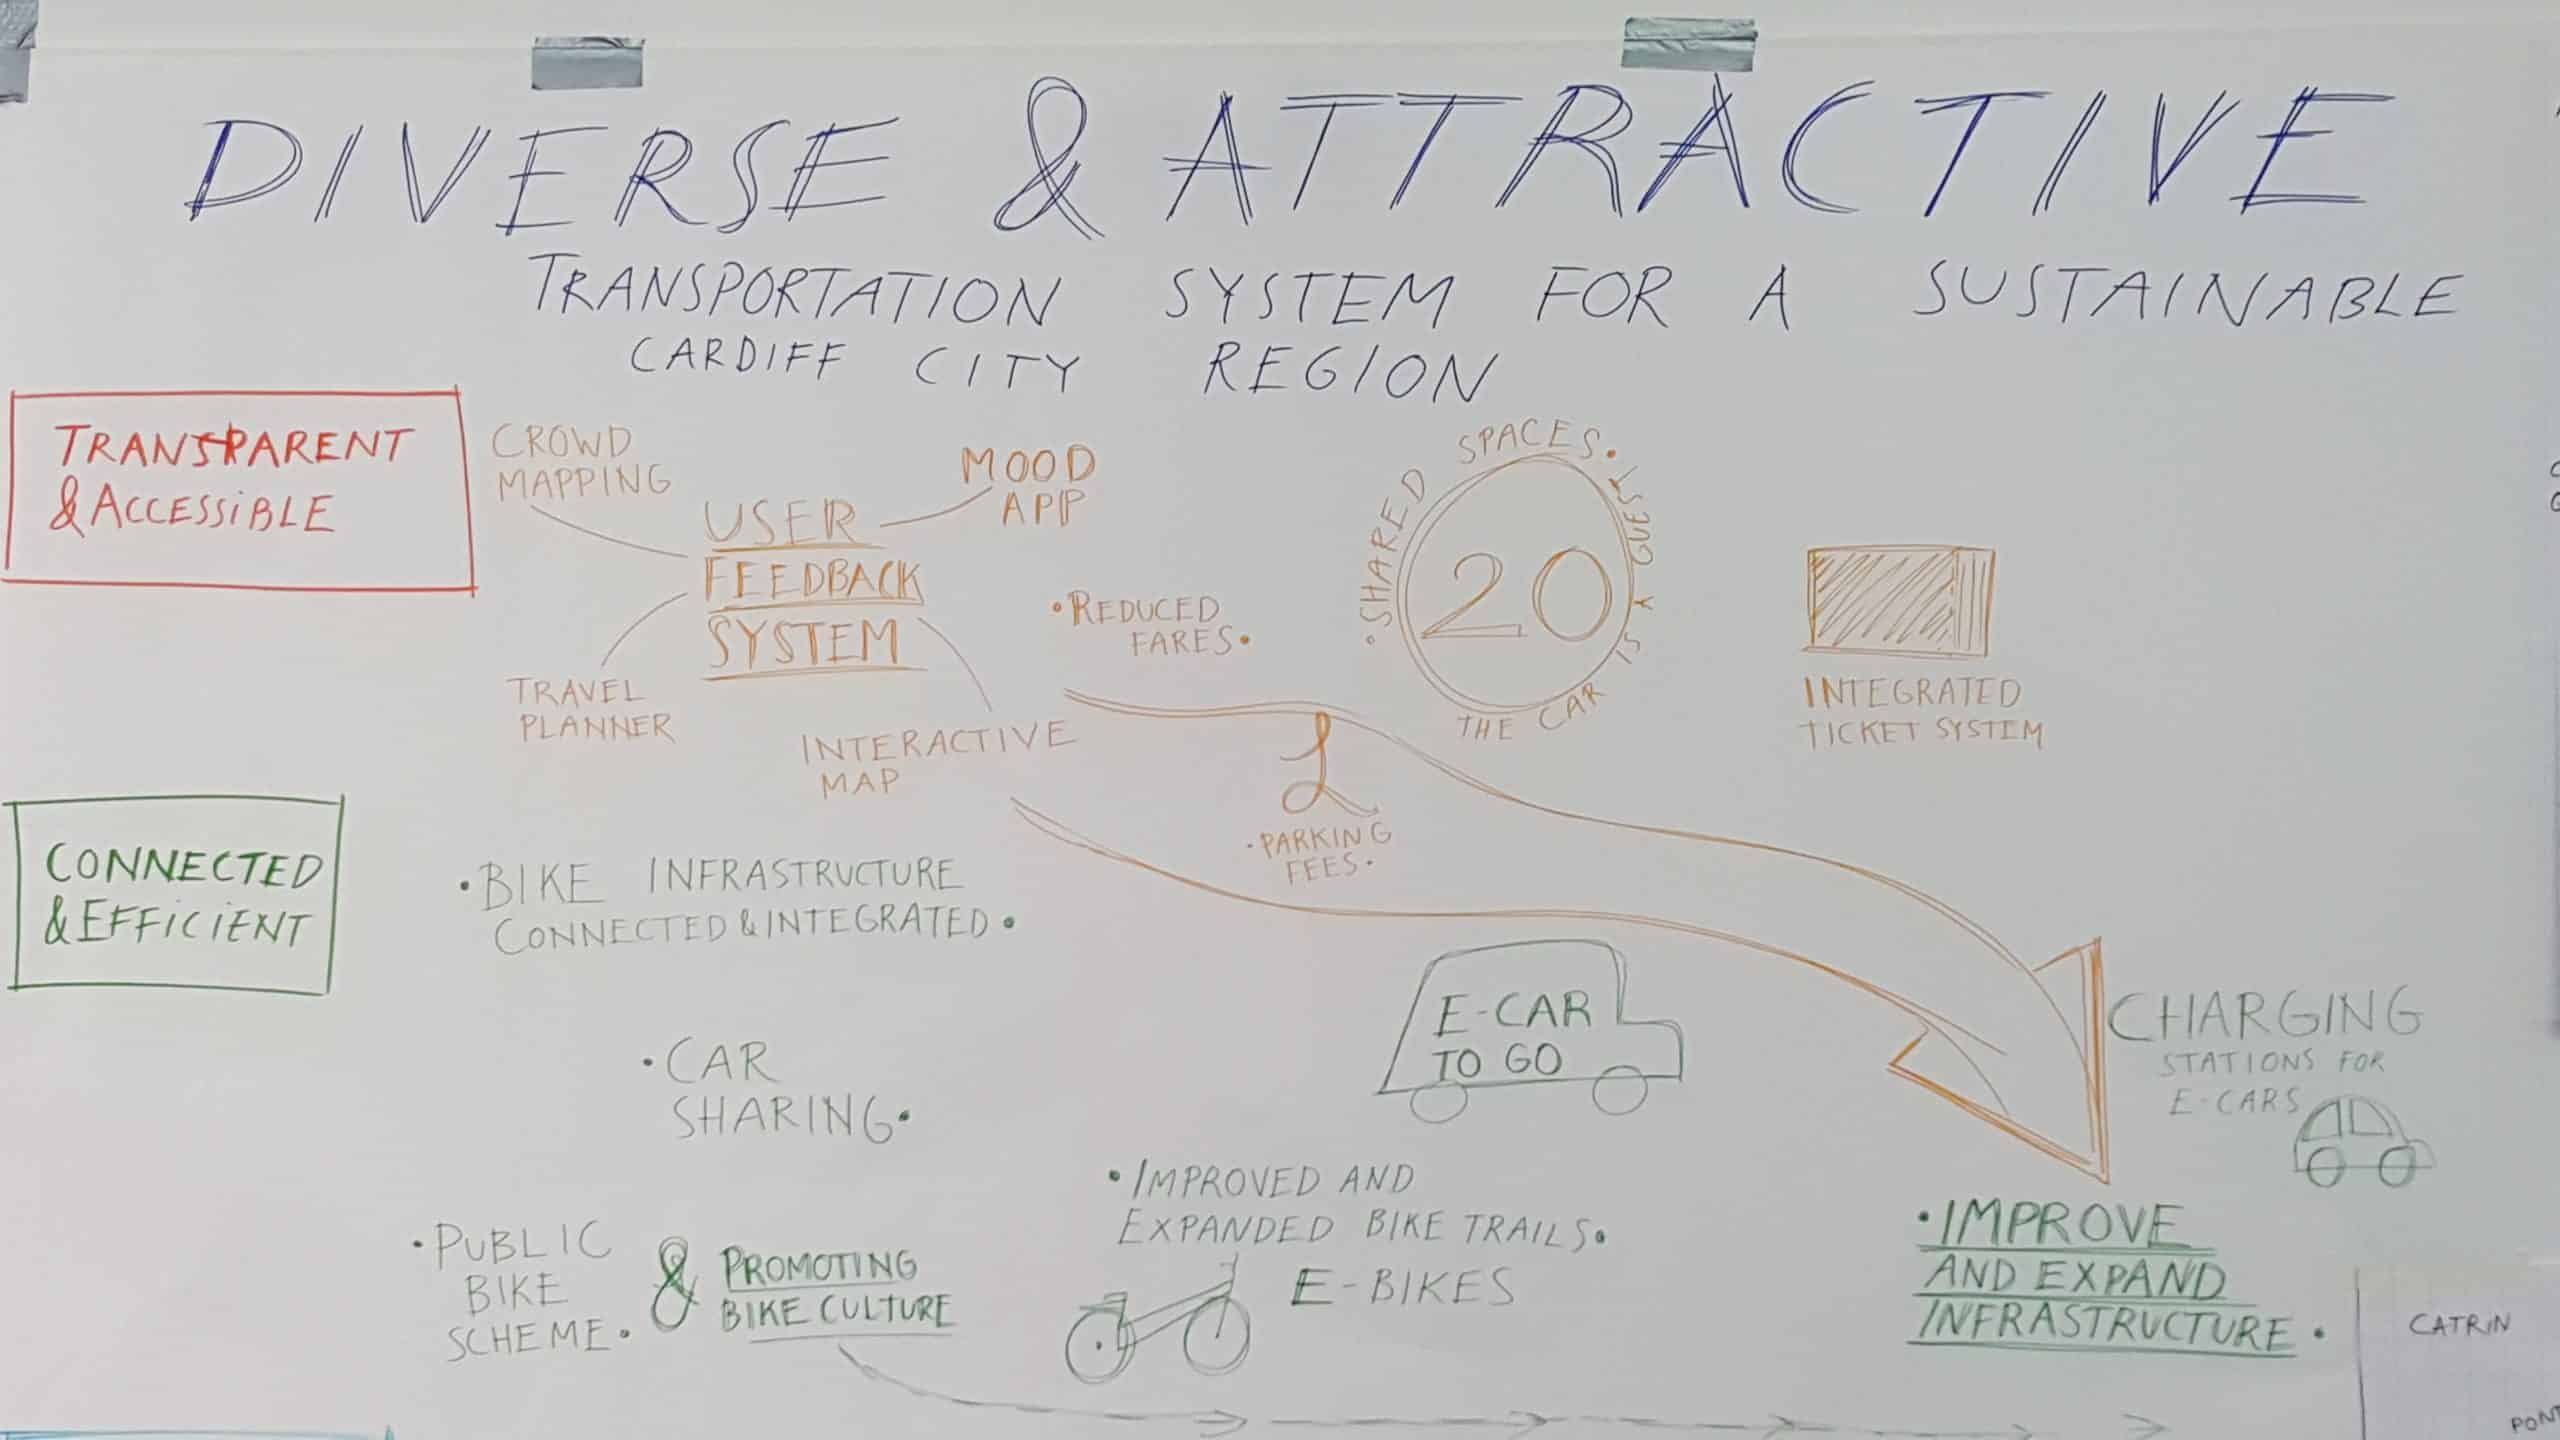 DIVERSE & ATTRACTIVE
TRANSPORTATION SYSTEM FOR A SUSTAINABLE
CARDIFF CITY REGION
TRANSPARENT
& ACCESSIBLE
CROWD
MAPPING
MOOD
APP
USER
FEEDBACK
SYSTEM
TRAVEL
PLANNER
INTERACTIVE
MAP
• REDUCED
FARES •
• SHARED SPACES •
THE CAR IS A GUEST
20
INTEGRATED
TICKET SYSTEM
£
• PARKING
FEES •
CONNECTED
& EFFICIENT
• BIKE INFRASTRUCTURE
CONNECTED & INTEGRATED •
• CAR
SHARING •
E-CAR
TO GO
CHARGING
STATIONS FOR
E-CARS
• PUBLIC
BIKE
SCHEME •
& PROMOTING
BIKE CULTURE
• IMPROVED AND
EXPANDED BIKE TRAILS •
E-BIKES
• IMPROVE
AND EXPAND
INFRASTRUCTURE •
CATRIN